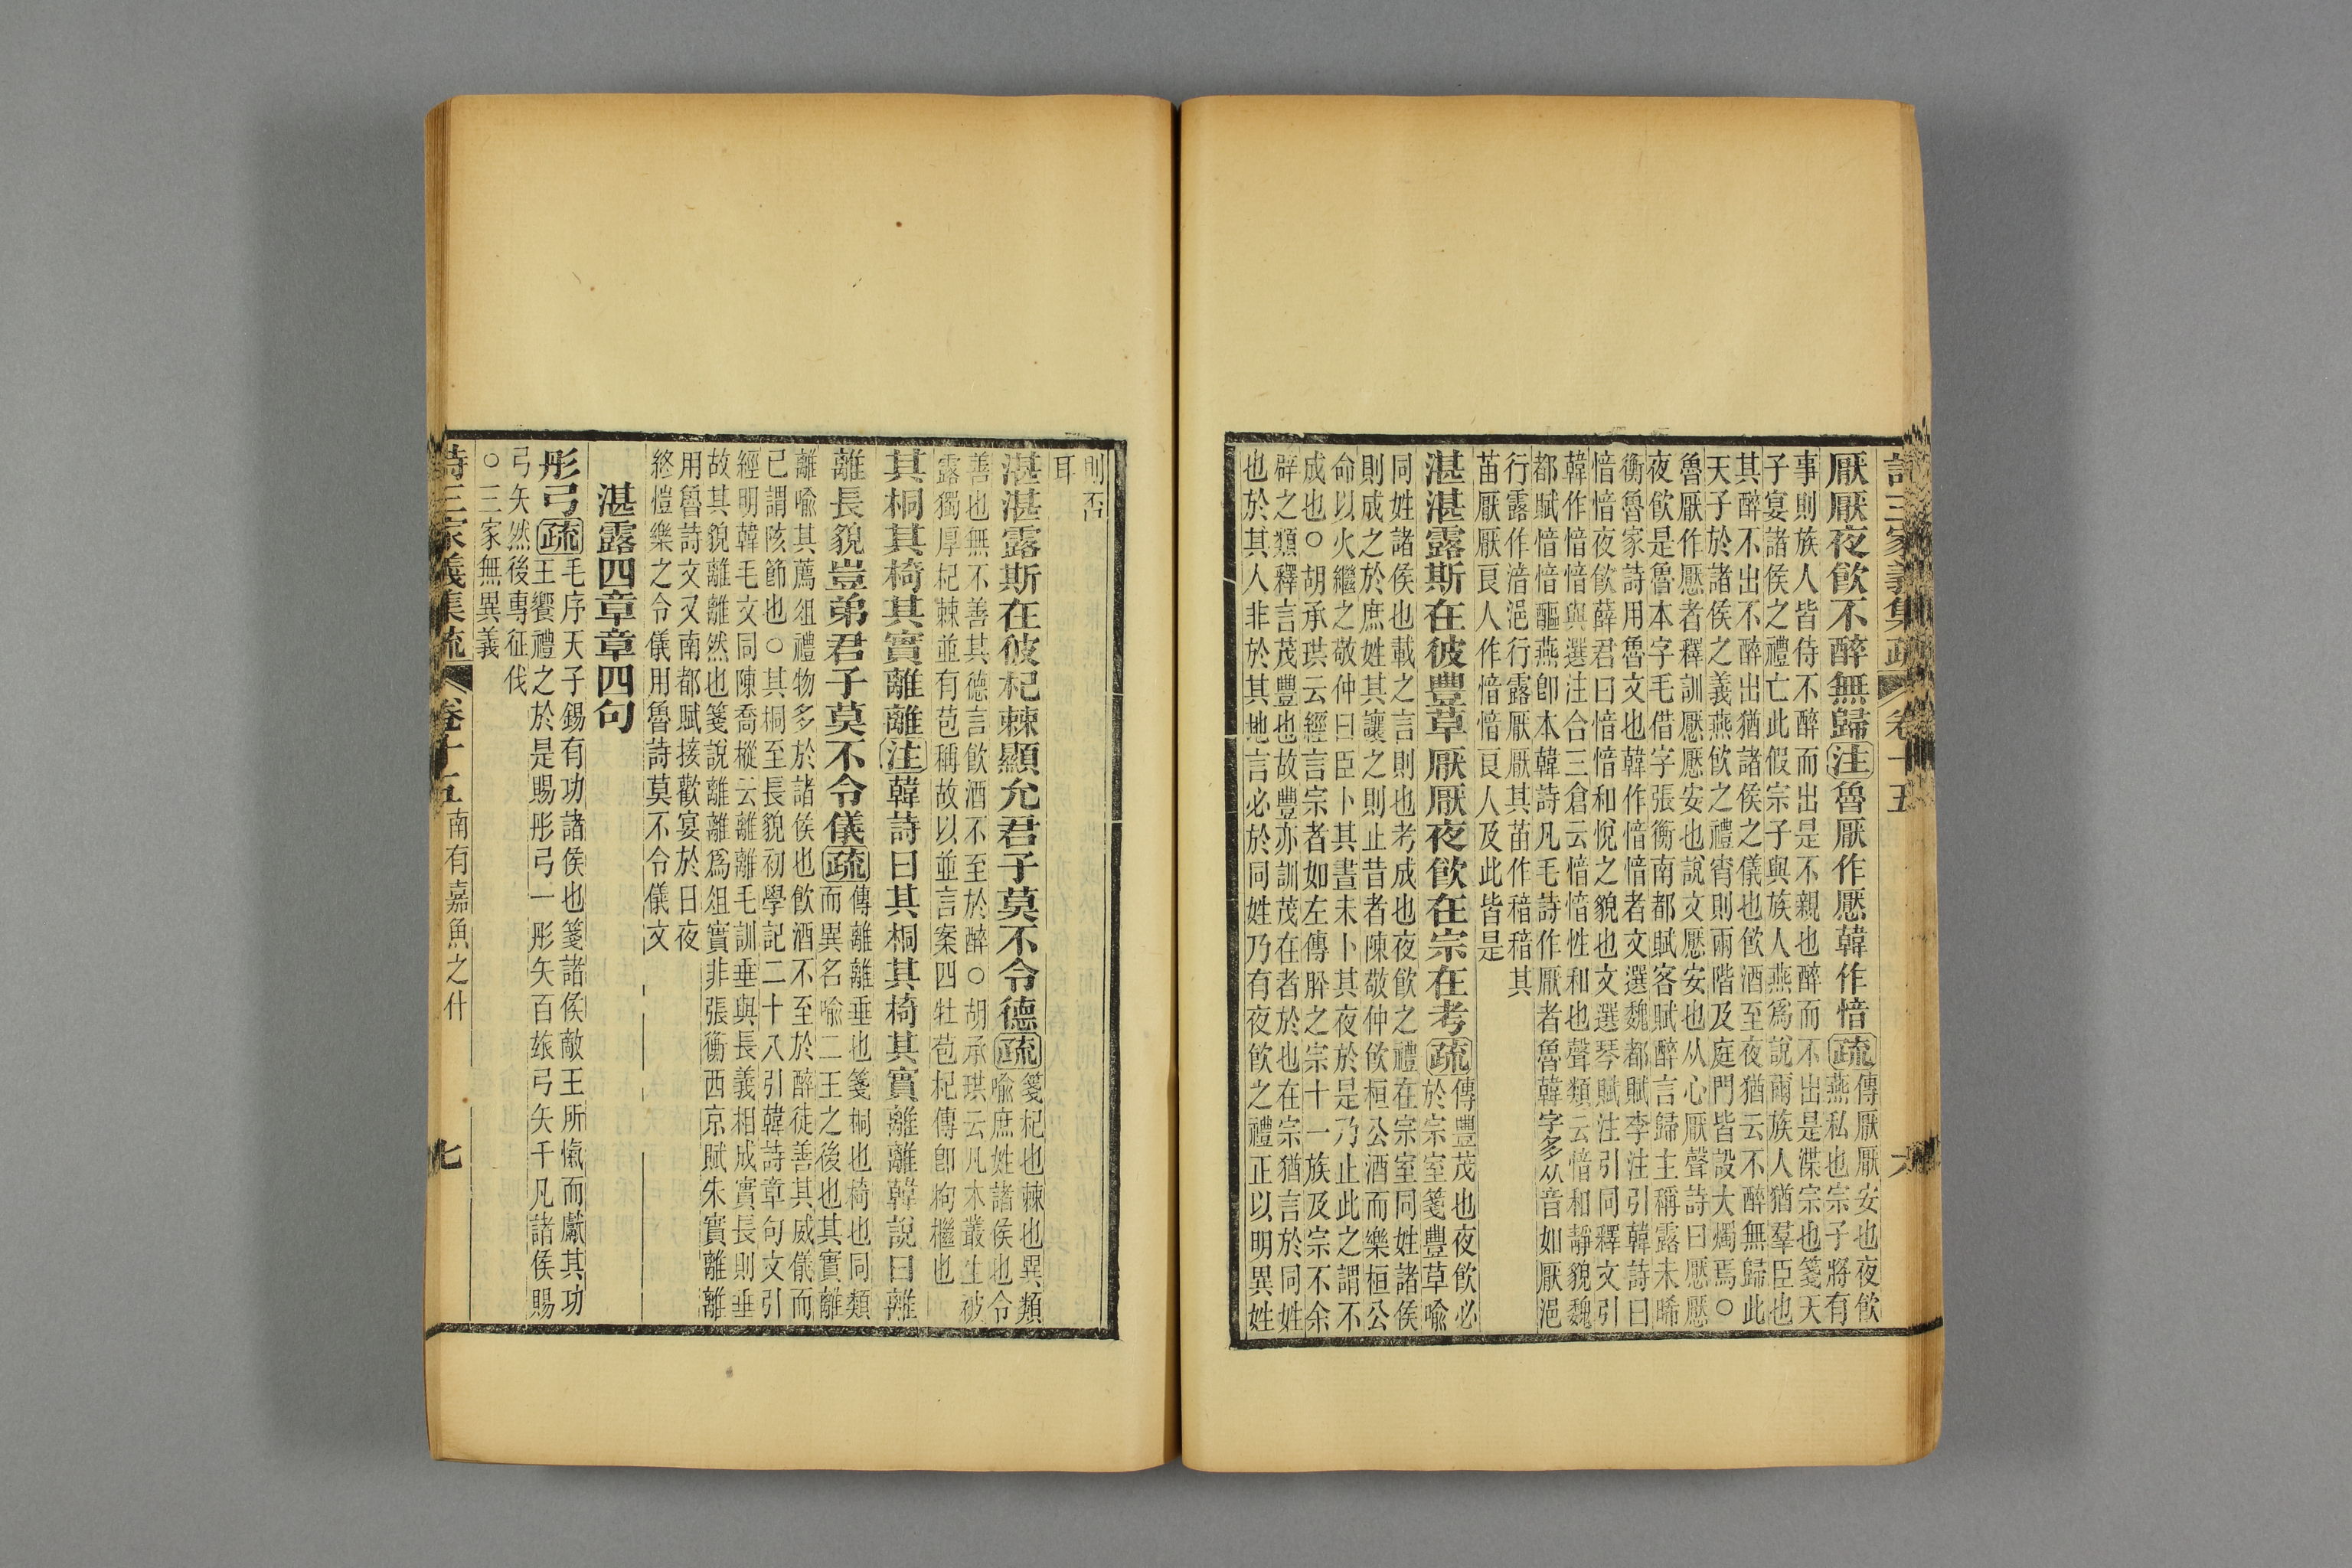 詩三家義集疏 卷十五 六
厭厭夜飲不醉無歸注魯厭作懕韓作愔疏傳厭厭安也夜飲
燕私也宗子將有
事則族人皆侍不醉而出是不親也醉而不出是渫宗也箋天
子宴諸侯之禮亡此假宗子與族人燕爲說爾族人猶羣臣也
其醉不出不醉出猶諸侯之儀也飲酒至夜猶云不醉無歸此
天子於諸侯之義燕飲之禮宵則兩階及庭門皆設大燭焉○
魯厭作懕者釋訓懕懕安也說文懕安也从心厭聲詩曰懕懕
夜飲是魯本字毛借字張衡南都賦客賦醉言歸主稱露未晞
衡魯家詩用魯文也韓作愔愔者文選魏都賦李注引韓詩曰
愔愔夜飲薛君曰愔愔和悅之貌也文選琴賦注引同釋文引
韓作愔愔與選注合三倉云愔愔性和也聲類云愔和靜貌魏
都賦愔愔醧燕卽本韓詩凡毛詩作厭者魯韓字多从音如厭浥
行露作湆浥行露厭厭其苗作稖稖其
苗厭厭良人作愔愔良人及此皆是
湛湛露斯在彼豐草厭厭夜飲在宗在考疏傳豐茂也夜飲必
於宗室箋豐草喻
同姓諸侯也載之言則也考成也夜飲之禮在宗室同姓諸侯
則成之於庶姓其讓之則止昔者陳敬仲飲桓公酒而樂桓公
命以火繼之敬仲曰臣卜其晝未卜其夜於是乃止此之謂不
成也○胡承珙云經言宗者如左傳胙之宗十一族及宗不余
辟之類釋言茂豐也故豐亦訓茂在者於也在宗猶言於同姓
也於其人非於其地言必於同姓乃有夜飲之禮正以明異姓
則否
耳
湛湛露斯在彼杞棘顯允君子莫不令德疏箋杞也棘也異類
喻庶姓諸侯也令
善也無不善其德言飲酒不至於醉○胡承珙云凡木叢生被
露獨厚杞棘並有苞稱故以並言案四牡苞杞傳卽枸檵也
其桐其椅其實離離注韓詩曰其桐其椅其實離離韓說曰離
離長貌豈弟君子莫不令儀疏傳離離垂也箋桐也椅也同類
而異名喻二王之後也其實離
離喻其薦俎禮物多於諸侯也飲酒不至於醉徒善其威儀而
已謂陔節也○其桐至長貌初學記二十八引韓詩章句文引
經明韓毛文同陳喬樅云離離毛訓垂與長義相成實長則垂
故其貌離離然也箋說離離爲俎實非張衡西京賦朱實離離
用魯詩文又南都賦接歡宴於日夜
終愷樂之令儀用魯詩莫不令儀文
湛露四章章四句
彤弓疏毛序天子錫有功諸侯也箋諸侯敵王所愾而獻其功
王饗禮之於是賜彤弓一彤矢百玈弓矢千凡諸侯賜
弓矢然後專征伐
○三家無異義
詩三家義集疏 卷十五 南有嘉魚之什 七